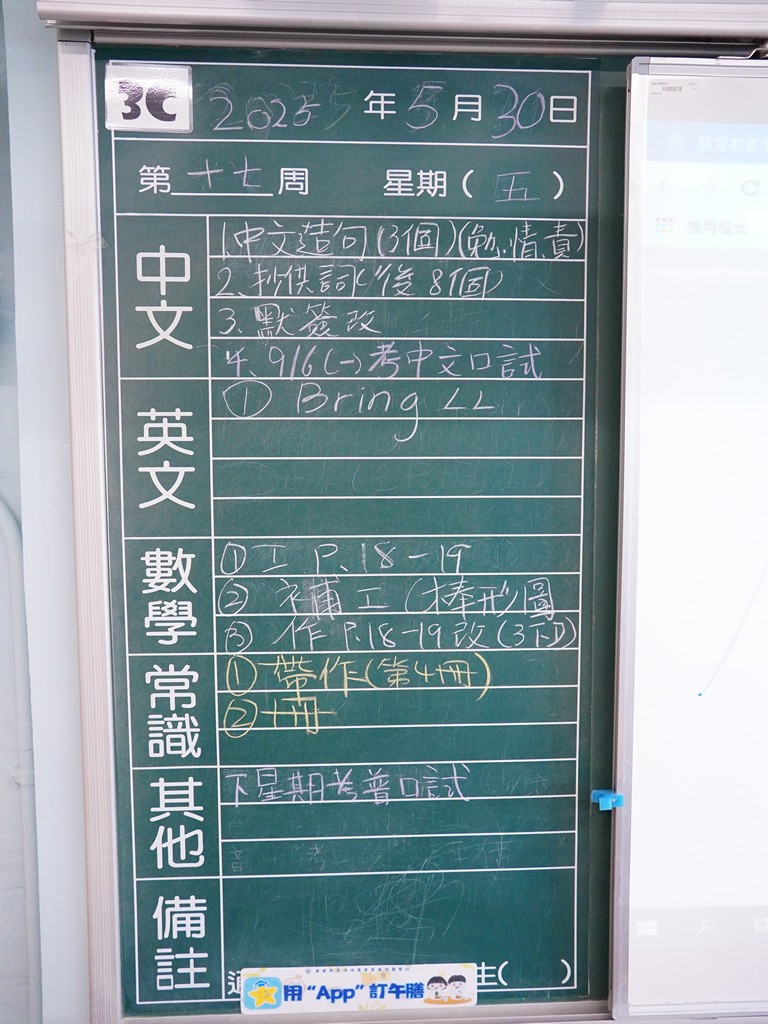 3C
2025年5月30日
第十七周 星期(五)
中文
1.中文造句(3個)(勉.情.責)
2.抄供詞(後8個)
3.默簽改
4. 9/6(一)考中文口試
英文
① Bring LL
數學
① 工 P.18-19
② 補工(棒形圖
③ 作 P.18-19改(3下)
常識
① 帶作(第4冊)
② 冊
其他
下星期考普口試
備註
生( )
用“App”訂午膳
應用程式